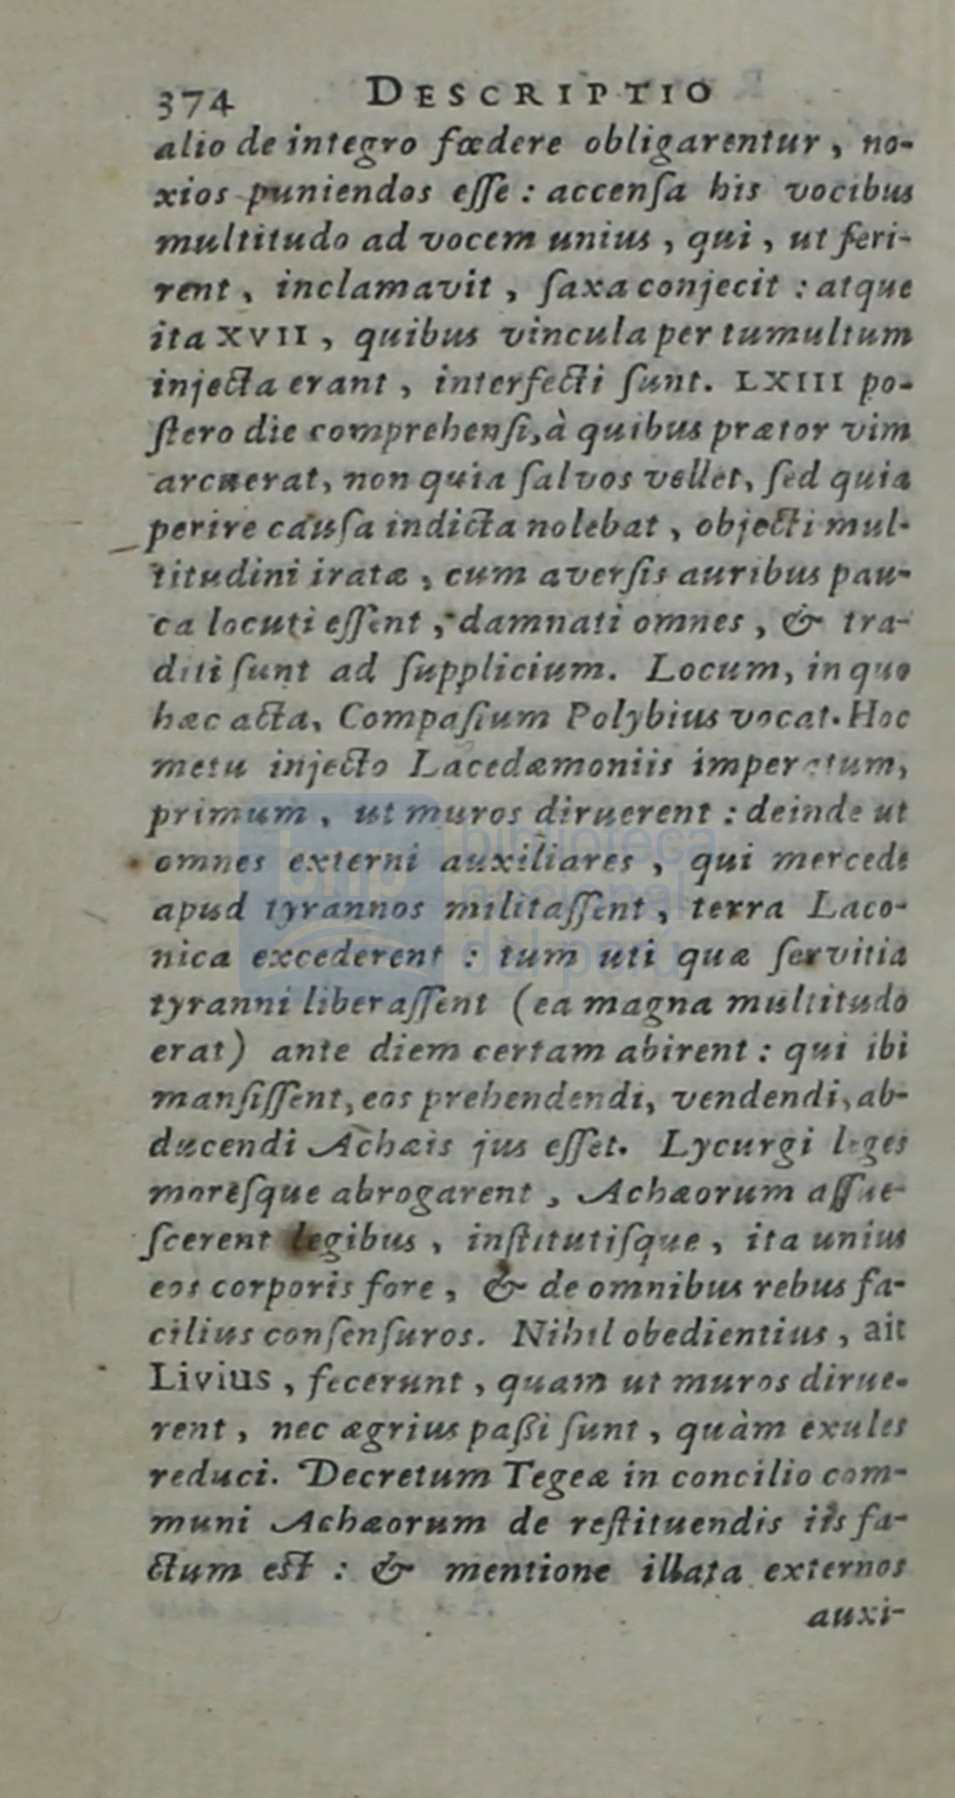 374 DESCRIPTIO
alio de integro fœdere obligarentur, no-
xios puniendos esse : accensa his vocibus
multitudo ad vocem unius, qui, ut feri-
rent, inclamavit, saxa conjecit : atque
ita XVII, quibus vincula per tumultum
injecta erant, interfecti sunt. LXIII po-
stero die comprehensi, à quibus prætor vim
arcuerat, non quia salvos vellet, sed quia
perire causa indicta nolebat, objecti mul-
titudini iratæ, cum aversis auribus pau-
ca locuti essent, damnati omnes, & tra-
diti sunt ad supplicium. Locum, in quo
hæc acta, Compasium Polybius vocat. Hoc
metu injecto Lacedæmoniis imperatum,
primum, ut muros diruerent : deinde ut
omnes externi auxiliares, qui mercede
apud tyrannos militassent, terra Laco-
nica excederent : tum uti quæ servitia
tyranni liberassent (ea magna multitudo
erat) ante diem certam abirent : qui ibi
mansissent, eos prehendendi, vendendi, ab-
ducendi Achæis jus esset. Lycurgi leges
moresque abrogarent, Achæorum assue-
scerent legibus, institutisque, ita unius
eos corporis fore, & de omnibus rebus fa-
cilius consensuros. Nihil obedientius, ait
Livius, fecerunt, quam ut muros dirue-
rent, nec ægrius passi sunt, quàm exules
reduci. Decretum Tegeæ in concilio com-
muni Achæorum de restituendis iis fa-
ctum est : & mentione illata externos
auxi-
bnp biblioteca
nacional
del perú